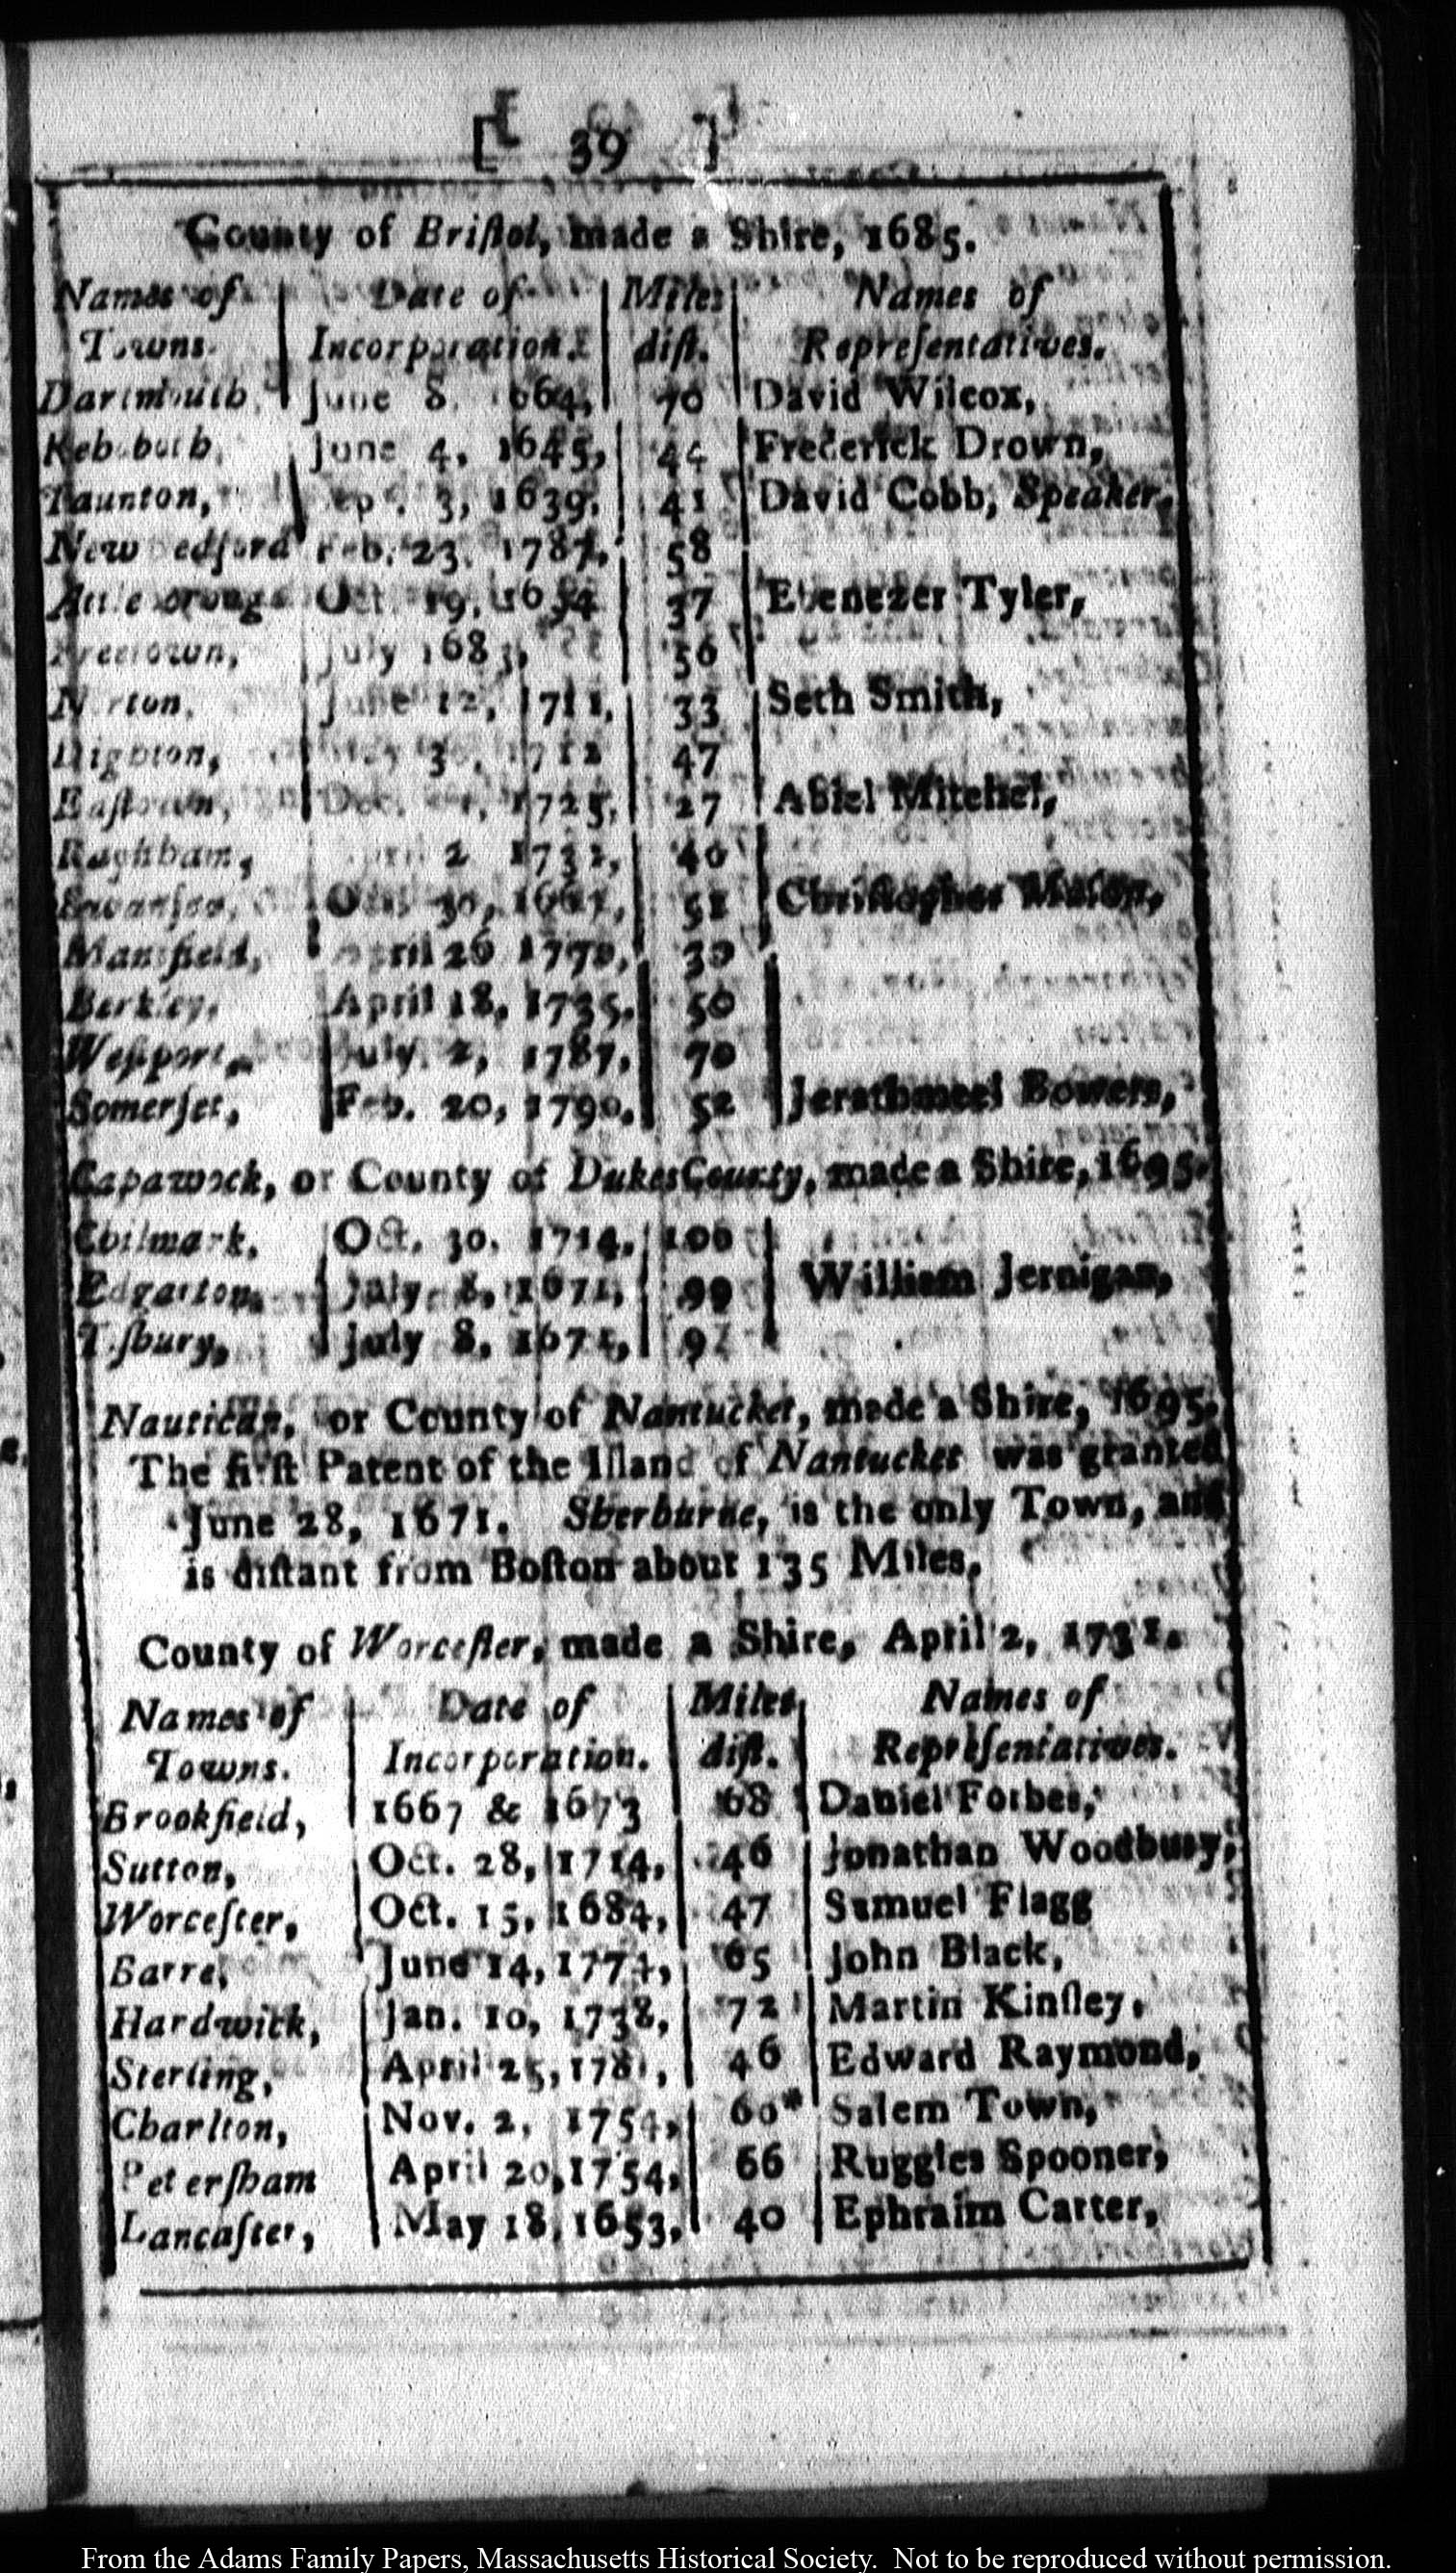 [ 39 ]
County of Briſtol, made a Shire, 1685.
Names of Date of Miles Names of
Towns. Incorporation. diſt. Repreſentatives.
Dartmouth, June 8, 1664, 70 David Wilcox,
June 4, 1645, 44 Frederick Drown,
Taunton, 3, 1639, 41 David Cobb, Speaker,
New Feb. 23, 1787, 58
Oct. 19, 37 Ebenezer Tyler,
July 56
June 12, 1711, 33 Seth Smith,
47
Dec. 1725, 27 Abiel Mitchel,
40
51
Mansfield, April 26
Berkley, April 18, 1735, 50
Weſtport, July 2, 1787, 70
Somerſet, Feb. 20, 1790, 52 Jerathmeel Bowers,
Capawock, or County of Dukes County, made a Shire, 1695.
Chilmark, Oct. 30, 1714, 100
Edgarton, July 8, 1671, 99 William Jernigan,
Tiſbury, July 8, 1671,
Nautican, or County of Nantucket, made a Shire, 1695.
The firſt Patent of the Iſland of Nantucket was granted
June 28, 1671. Sherburne, is the only Town, and
is diſtant from Boſton about 135 Miles.
County of Worceſter, made a Shire, April 2, 1731.
Names of Date of Miles Names of
Towns. Incorporation. diſt. Repreſentatives.
Brookfield, 1667 & 1673 68 Daniel Forbes,
Sutton, Oct. 28, 1714, 46 Jonathan Woodbury,
Worceſter, Oct. 15, 1684, 47 Samuel Flagg
Barre, June 14, 1774, 65 John Black,
Hardwick, Jan. 10, 1738, 72 Martin Kinſley,
Sterling, April 25, 1781, 46 Edward Raymond,
Charlton, Nov. 2, 1754, 60* Salem Town,
Peterſham April 20, 1754, 66 Ruggles Spooner,
Lancaſter, May 18, 1653, 40 Ephraim Carter,
From the Adams Family Papers, Massachusetts Historical Society. Not to be reproduced without permission.